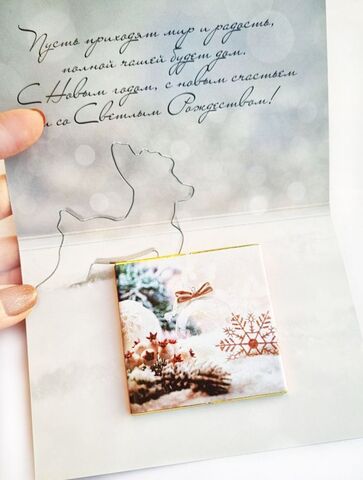 Пусть приходят мир и радость,
полной чашей будет дом.
С Новым годом, с новым счастьем
и со Светлым Рождеством!